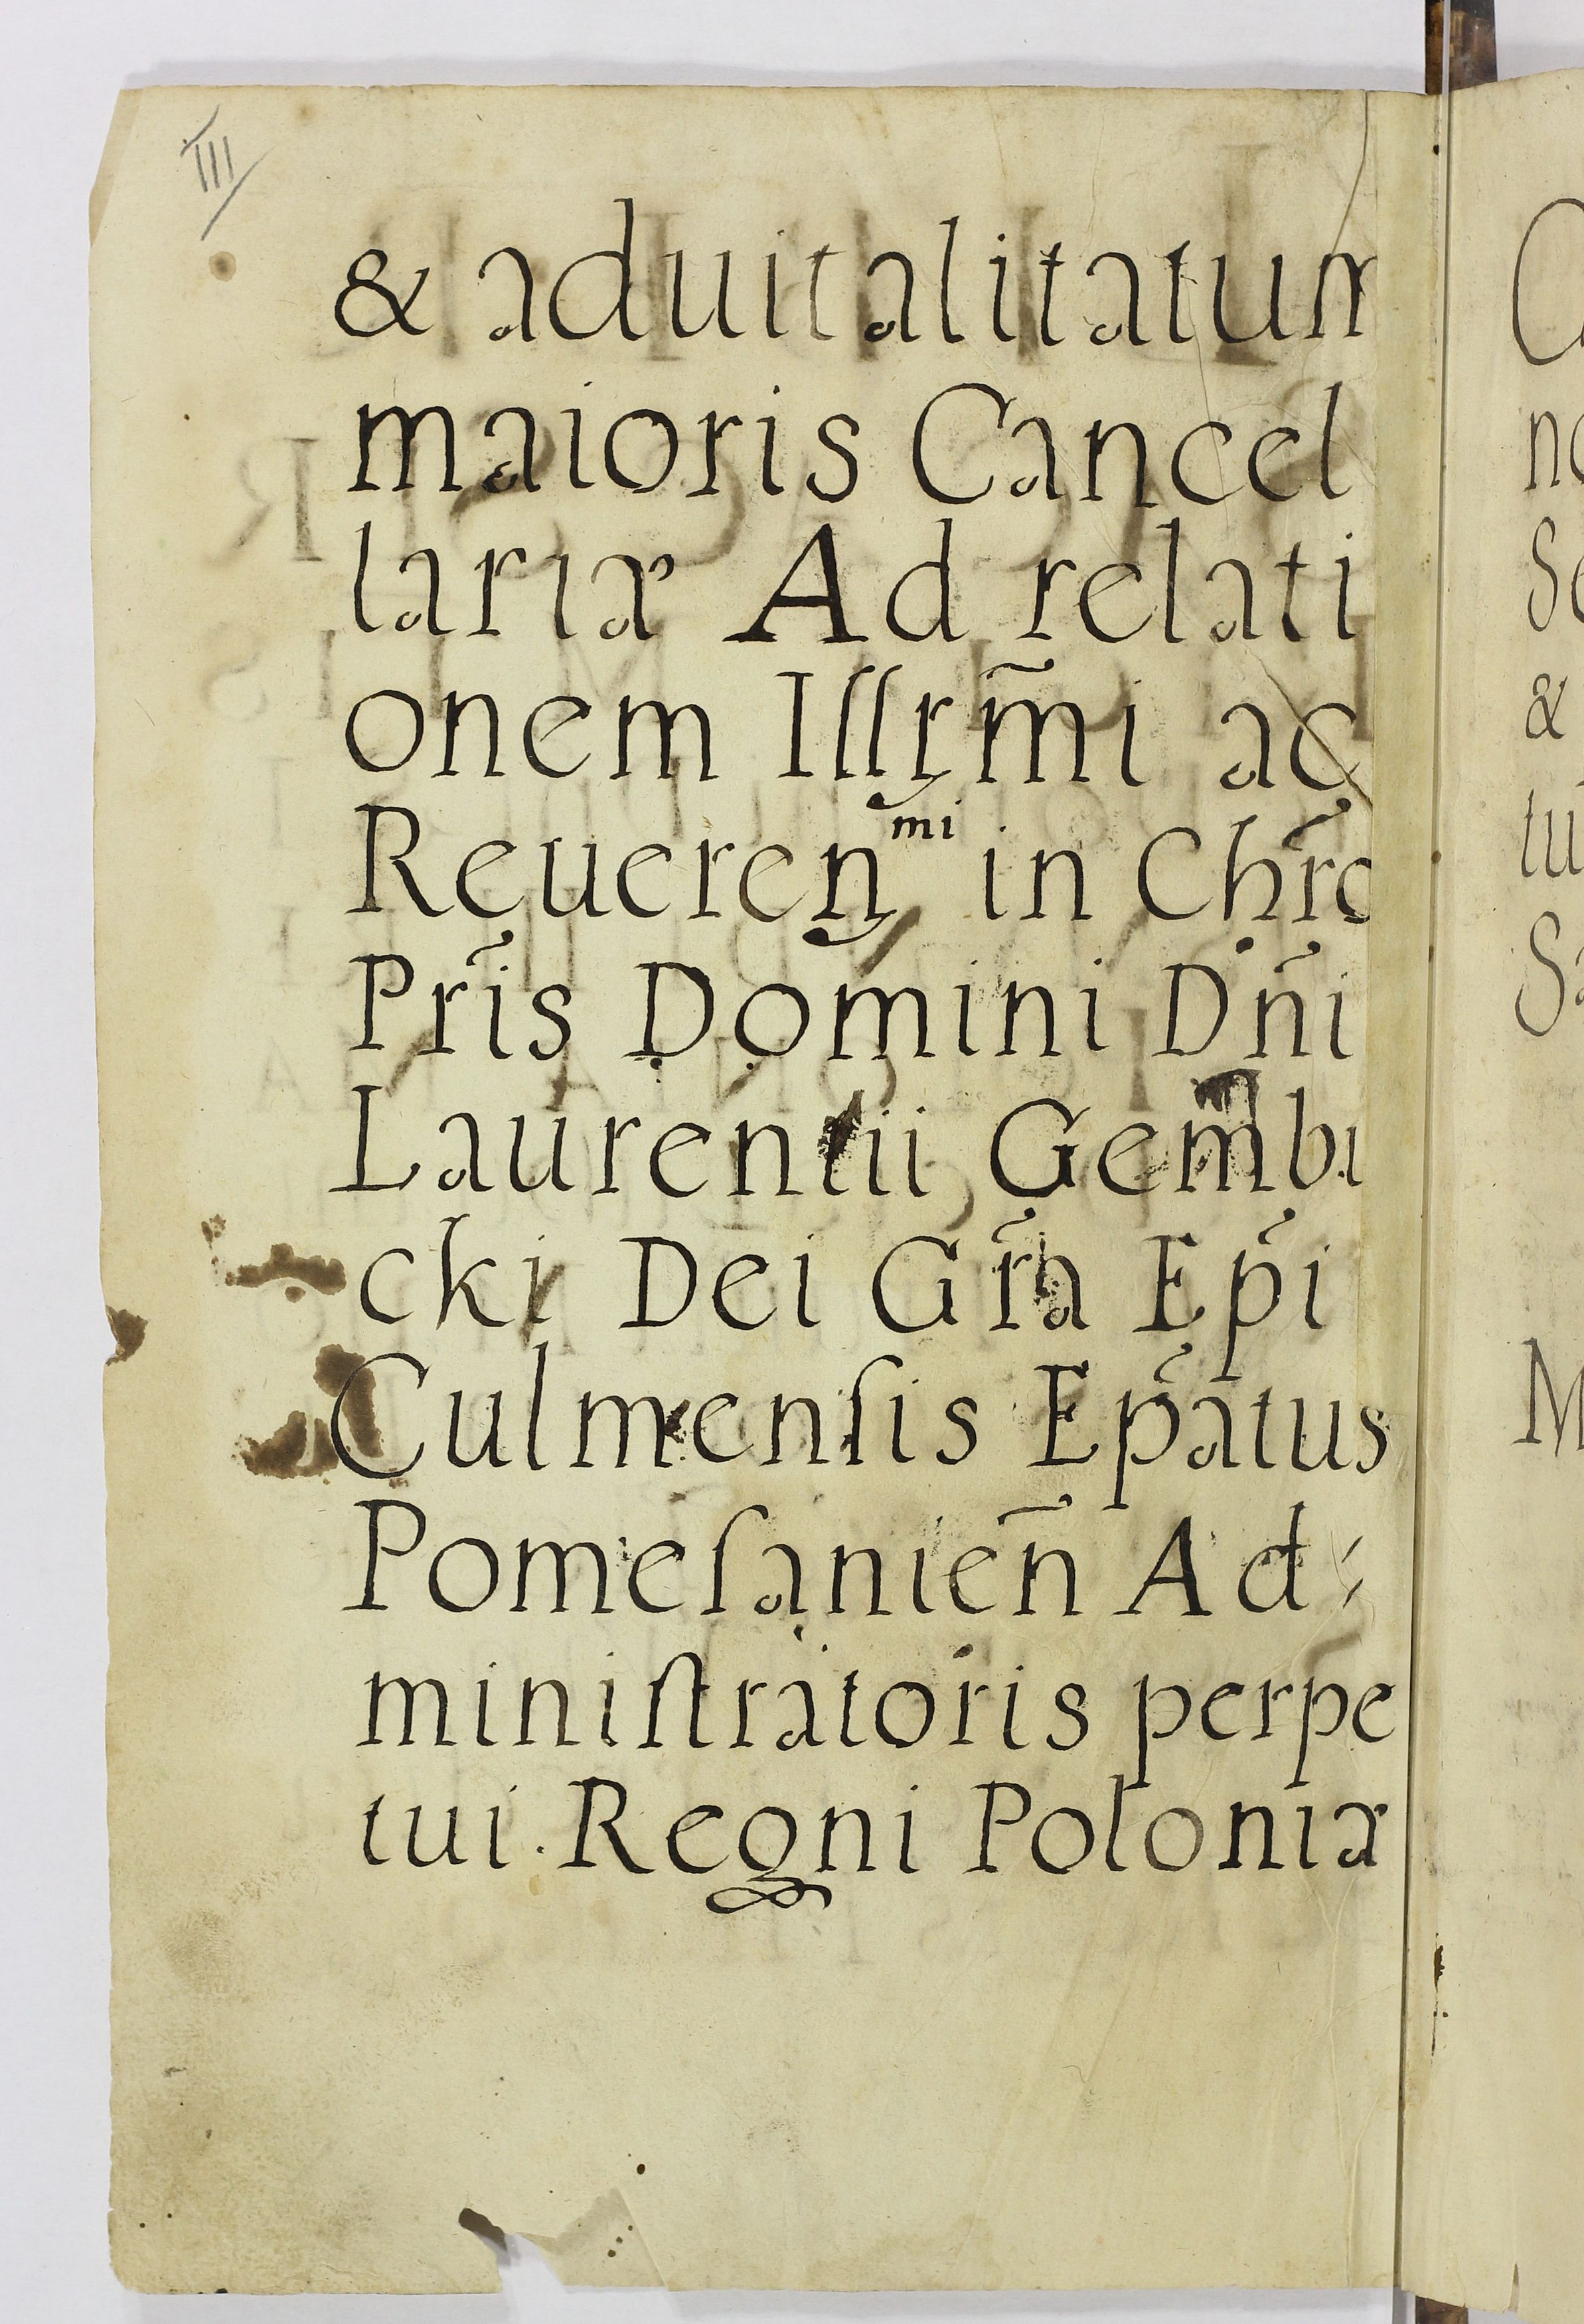 III
& aduitalitatum
maioris Cancel
lariæ Ad relati
onem Illr̃mi ac
Reueren^mi in Chr̃o
Pr̃is Domini Dñi
Laurentii Gembi
cki Dei Gr̃a Ep̃i
Culmenſis Ep̃atus
Pomeſanien̄ Ad⸗
miniſtratoris perpe
tui Regni Poloniæ